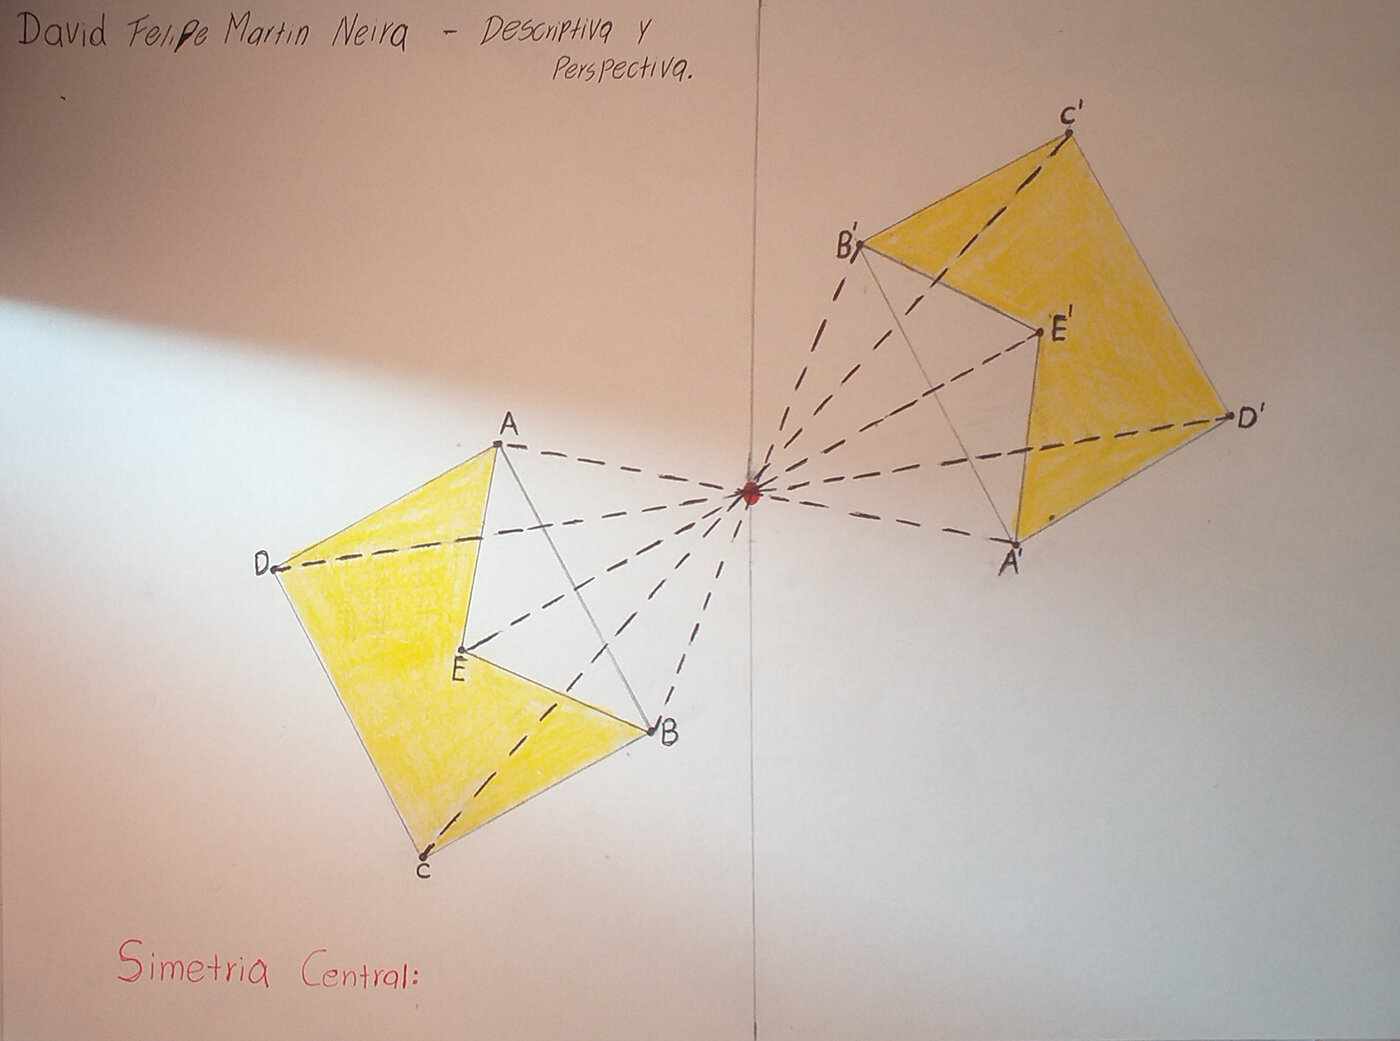 David Felipe Martin Neira - Descriptiva y
Perspectiva.
C'
B'
E'
D'
A
A'
D
E
B
C
Simetria Central: